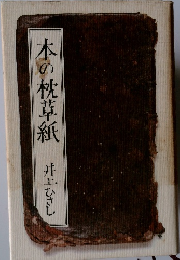 本の枕草紙
井上ひさし